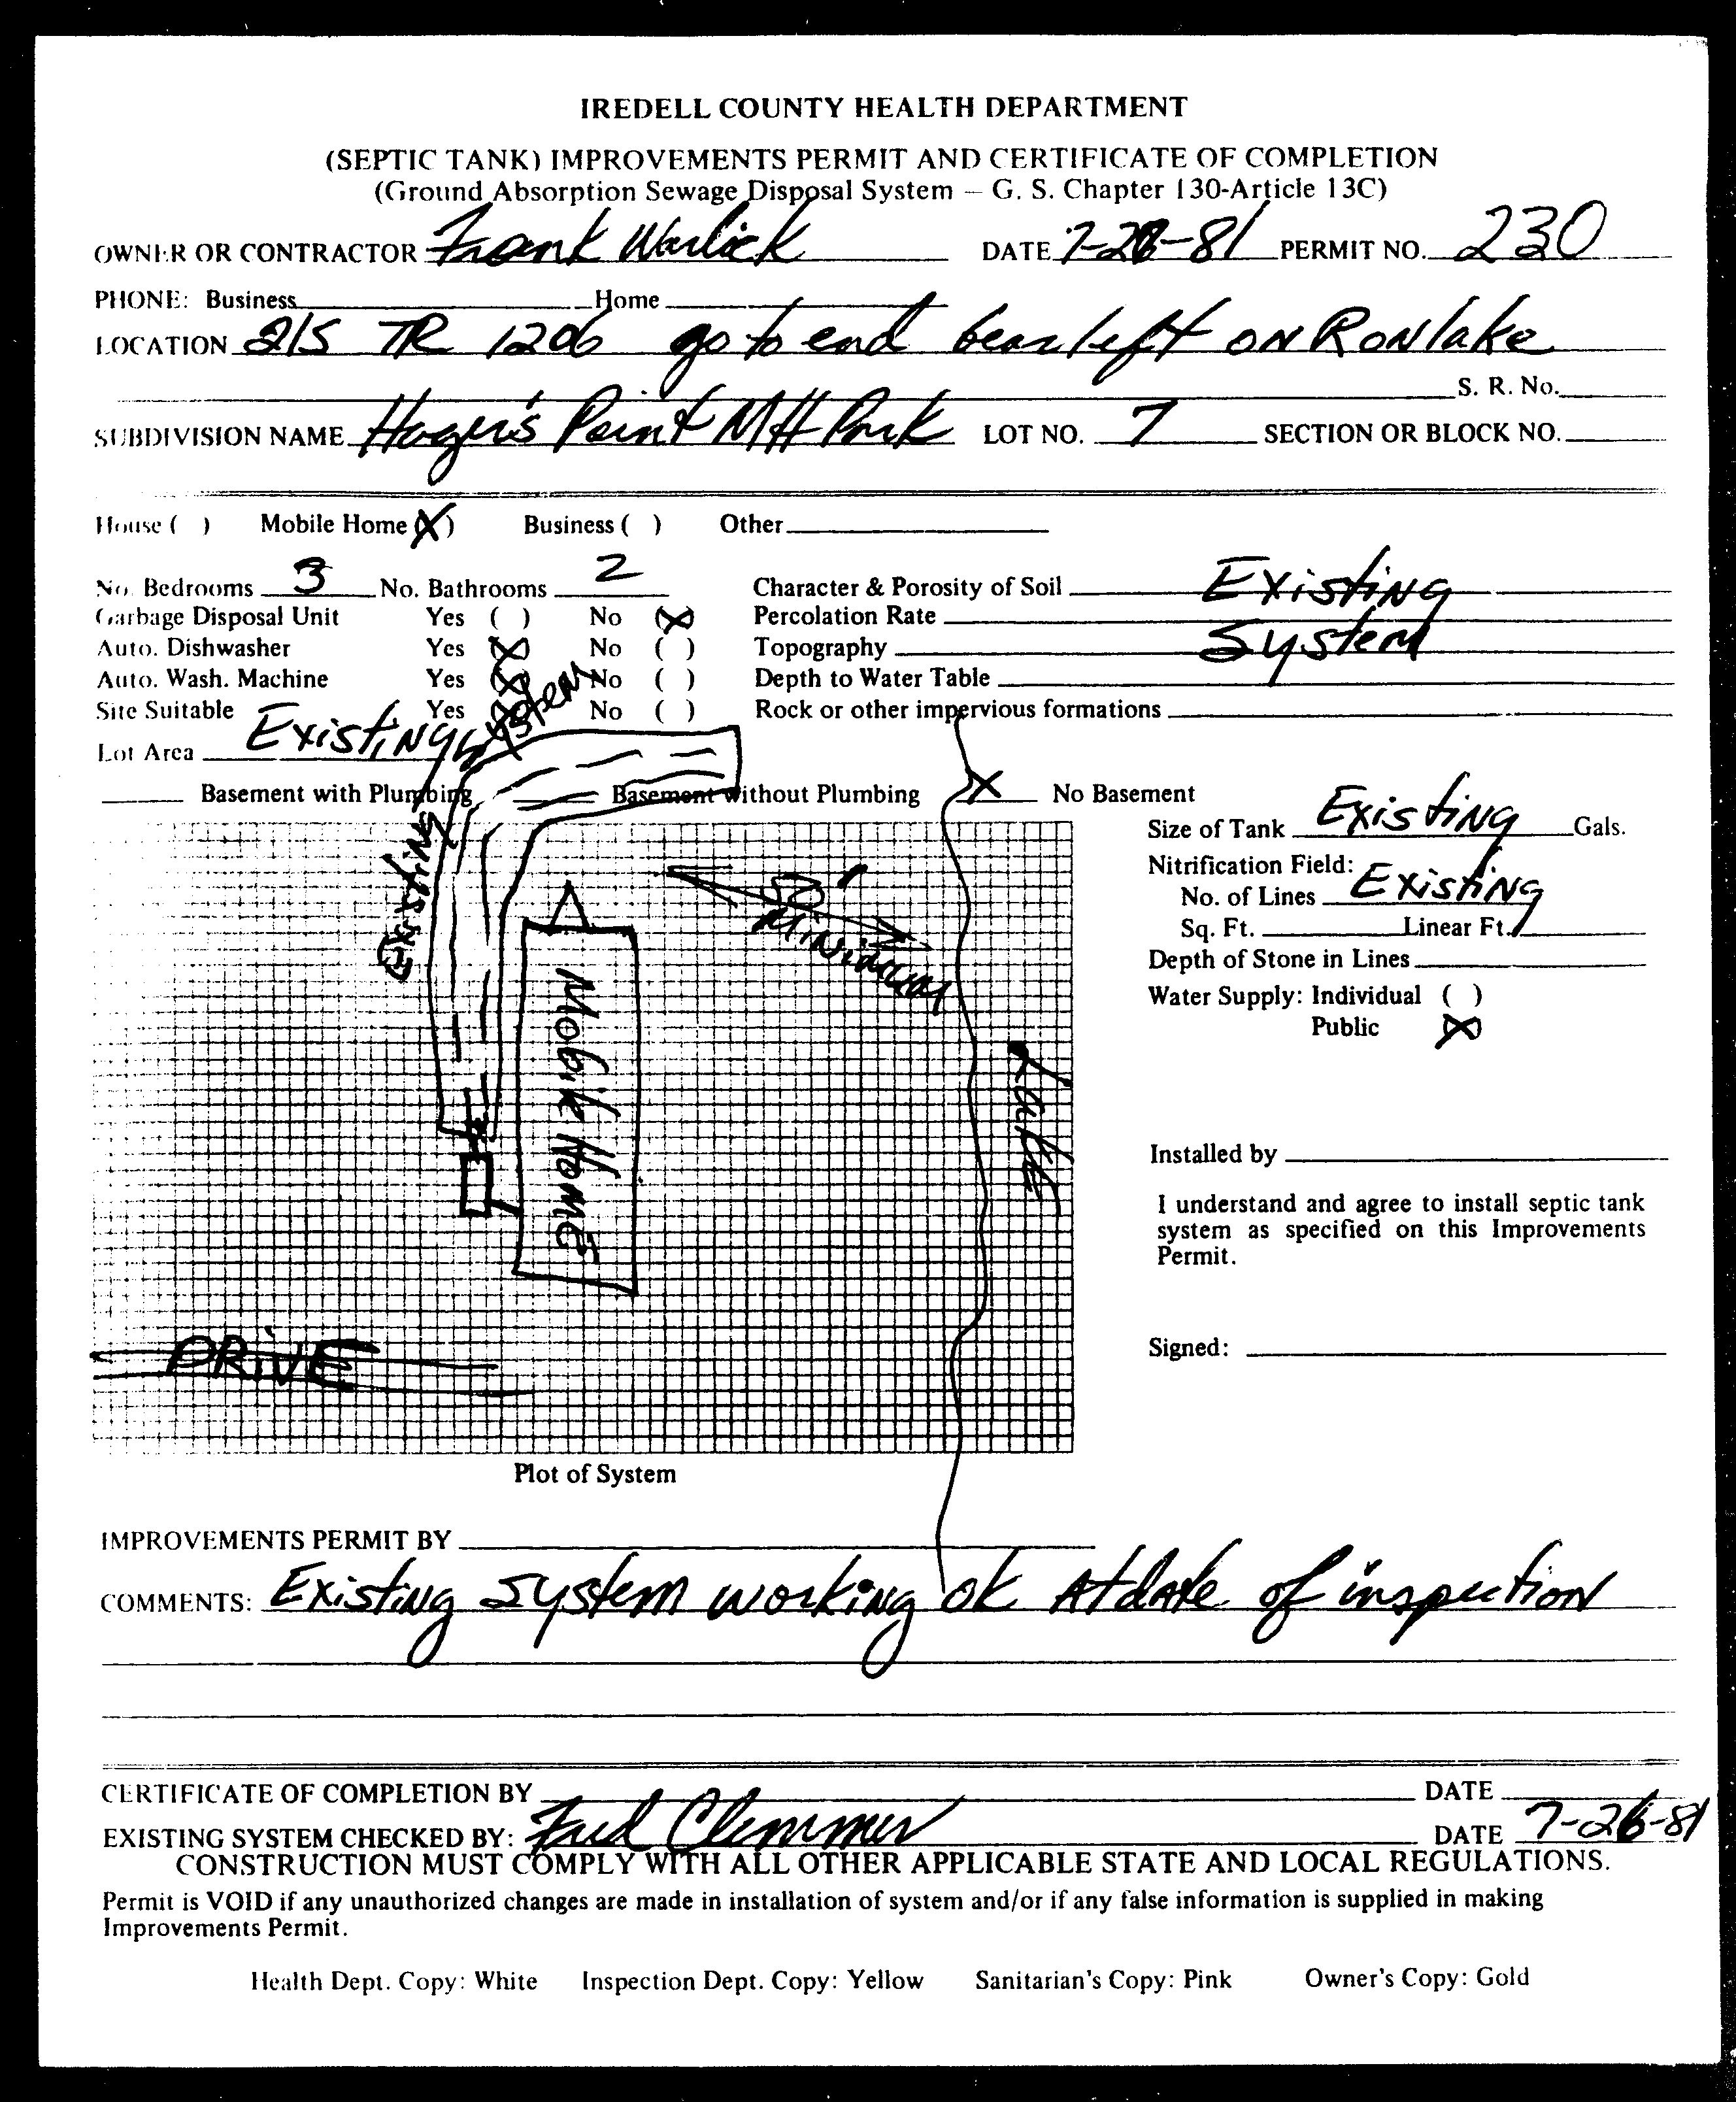 IREDELL COUNTY HEALTH DEPARTMENT
(SEPTIC TANK) IMPROVEMENTS PERMIT AND CERTIFICATE OF COMPLETION
(Ground Absorption Sewage Disposal System — G. S. Chapter 130-Article 13C)
OWNER OR CONTRACTOR Frank Warlick DATE 7-26-81 PERMIT NO. 230
PHONE: Business Home
LOCATION 21S TR 1206 go to end bear left on RonLake
S. R. No.
SUBDIVISION NAME Hager's Point MH Park LOT NO. 7 SECTION OR BLOCK NO.
House ( ) Mobile Home (X) Business ( ) Other
No. Bedrooms 3 No. Bathrooms 2 Character & Porosity of Soil Existing
Garbage Disposal Unit Yes ( ) No (X) Percolation Rate
Auto. Dishwasher Yes (X) No ( ) Topography System
Auto. Wash. Machine Yes (X) No ( ) Depth to Water Table
Site Suitable Yes (X) No ( ) Rock or other impervious formations
Lot Area Existing System
Basement with Plumbing Basement without Plumbing X No Basement
Size of Tank Existing Gals.
Nitrification Field:
No. of Lines Existing
Sq. Ft. Linear Ft.
Depth of Stone in Lines
Water Supply: Individual ( )
Public (X)
Existing
50'
Minimum
Mobile Home
Lake
DRIVE
Installed by
I understand and agree to install septic tank
system as specified on this Improvements
Permit.
Signed:
Plot of System
IMPROVEMENTS PERMIT BY
COMMENTS: Existing System working ok At date of inspection
CERTIFICATE OF COMPLETION BY DATE
EXISTING SYSTEM CHECKED BY: Fred Clemmer DATE 7-26-81
CONSTRUCTION MUST COMPLY WITH ALL OTHER APPLICABLE STATE AND LOCAL REGULATIONS.
Permit is VOID if any unauthorized changes are made in installation of system and/or if any false information is supplied in making
Improvements Permit.
Health Dept. Copy: White Inspection Dept. Copy: Yellow Sanitarian's Copy: Pink Owner's Copy: Gold